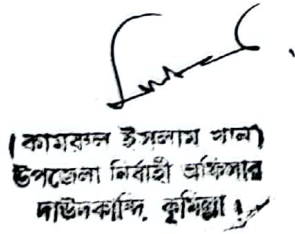 (কামরুল ইসলাম খান)
উপজেলা নির্বাহী অফিসার
দাউদকান্দি, কুমিল্লা।